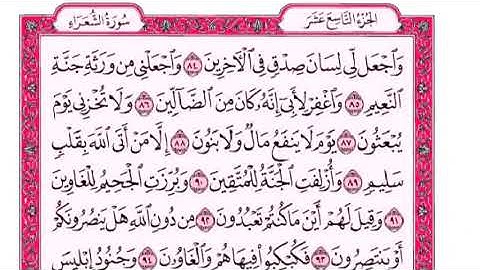 الجزء التاسع عشر
سورة الشعراء
وَٱجْعَل لِّى لِسَانَ صِدْقٍ فِى ٱلْأَخِرِينَ ٨٤ وَٱجْعَلْنِى مِن وَرَثَةِ جَنَّةِ
ٱلنَّعِيمِ ٨٥ وَٱغْفِرْ لِأَبِىٓ إِنَّهُۥ كَانَ مِنَ ٱلضَّآلِّينَ ٨٦ وَلَا تُخْزِنِى يَوْمَ
يُبْعَثُونَ ٨٧ يَوْمَ لَا يَنفَعُ مَالٌ وَلَا بَنُونَ ٨٨ إِلَّا مَنْ أَتَى ٱللَّهَ بِقَلْبٍ
سَلِيمٍ ٨٩ وَأُزْلِفَتِ ٱلْجَنَّةُ لِلْمُتَّقِينَ ٩٠ وَبُرِّزَتِ ٱلْجَحِيمُ لِلْغَاوِينَ
٩١ وَقِيلَ لَهُمْ أَيْنَ مَا كُنتُمْ تَعْبُدُونَ ٩٢ مِن دُونِ ٱللَّهِ هَلْ يَنصُرُونَكُمْ
أَوْ يَنتَصِرُونَ ٩٣ فَكُبْكِبُوا۟ فِيهَا هُمْ وَٱلْغَاوُۥنَ ٩٤ وَجُنُودُ إِبْلِيسَ